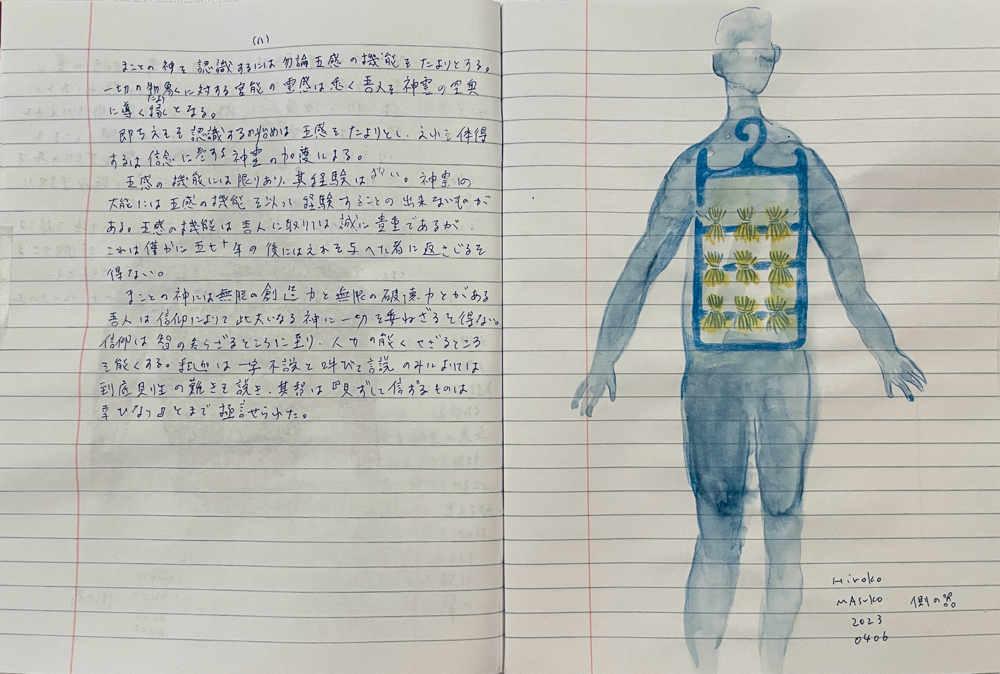 (八)
まことの神を認識するには勿論五感の機能をたよりとする。
一切の物象に対する官能の霊感は悉く吾人を神霊の堂奥
に導く縁となる。
即ちこれを認識する始めは五感をたよりとし、これを体得
するは信念に答する神霊の加護による。
五感の機能には限りあり、其経験は 。神霊の
大能には五感の機能を以て経験することの出来ないものが
ある。五感の機能は吾人に取りては誠に貴重であるが、
これは僅かに五七十年の後にはこれを与へた者に返さざるを
得ない。
まことの神には無限の創造力と無限の破壊力とがある
吾人は信仰によりて此大いなる神に一切を委ねざるを得ない。
信仰は智の至らざるところに至り、人力の能くせざるところ
を能くする。釈迦は一字不説と叫びて言説のみによりては
到底見性の難きを説き、其督は『見ずして信ずるものは
幸ひなり』とまで極言せられた。
Hiroko
MAsuko 側の器
2023
0406